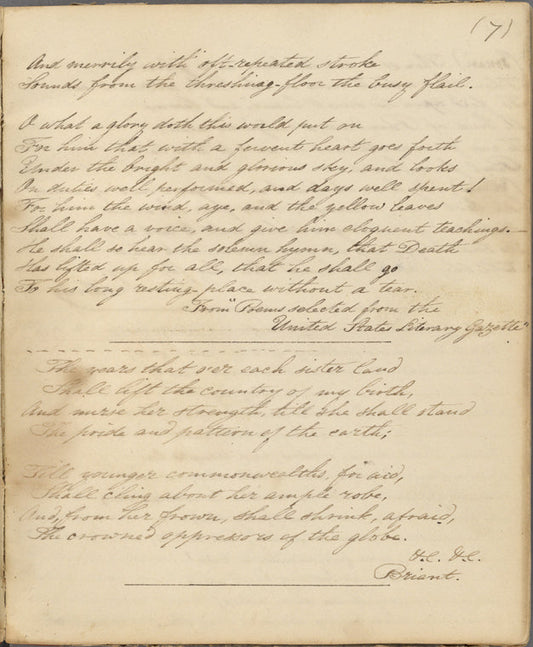 (7)
And merrily with oft-repeated stroke
Sounds from the threshing-floor the busy flail.
O what a glory doth this world put on
For him that with a fervent heart goes forth
Under the bright and glorious sky, and looks
On duties well performed, and days well spent!
For him the wind, aye, and the yellow leaves
Shall have a voice, and give him eloquent teachings.—
He shall so hear the solemn hymn, that Death
Has lifted up for all, that he shall go
To his long resting-place without a tear.
From "Poems selected from the
United States Literary Gazette"
The years that o'er each sister land
Shall lift the country of my birth,
And nurse her strength, till she shall stand
The pride and pattern of the earth;
Till younger commonwealths, for aid,
Shall cling about her ample robe,
And, from her frown, shall shrink, afraid,
The crowned oppressors of the globe.
&c. &c.
Briant.